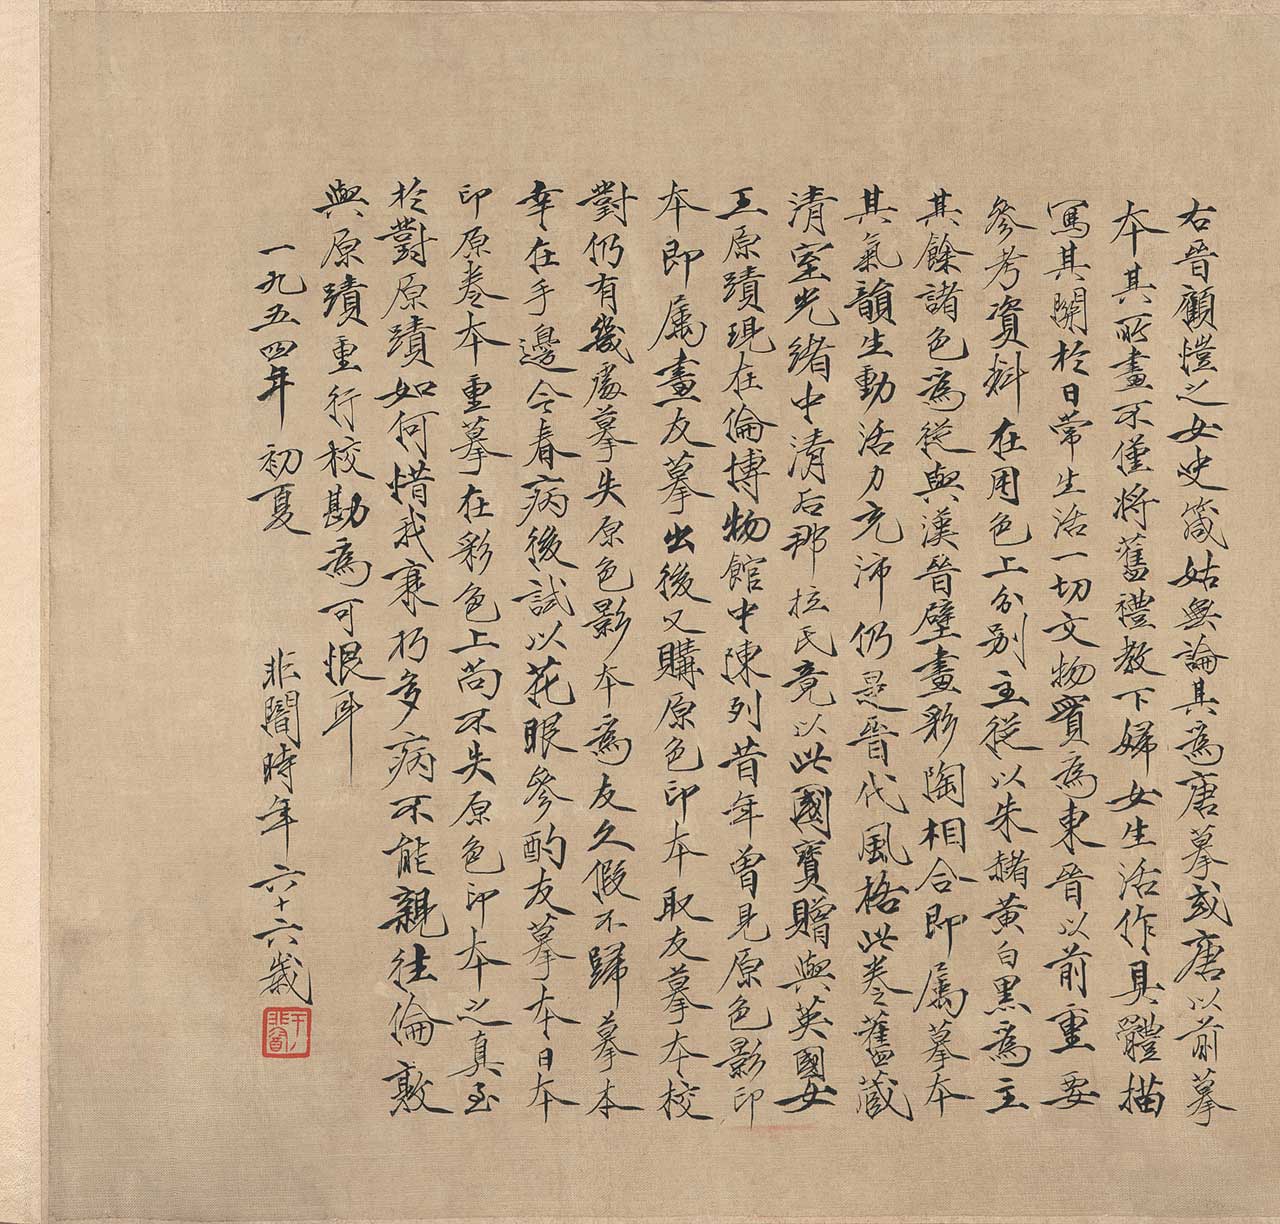 右晉顧愷之女史箴姑無論其為唐摹或唐以前摹
本其所畫不僅將舊禮教下婦女生活作具體描
寫其關於日常生活一切文物實為東晉以前重要
參考資料在用色上分別主從以朱赭黃白黑為主
其餘諸色為從與漢晉壁畫彩陶相合即屬摹本
其氣韻生動活力充沛仍是晉代風格此卷舊藏
清室光緒中清后那拉氏竟以此國寶贈與英國女
王原蹟現在倫博物館中陳列昔年曾見原色影印
本即属畫友摹出後又購原色印本取友摹本校
對仍有幾處摹失原色影本為友久假不歸摹本
幸在手邊今春病後試以花眼參酌友摹本日本
印原卷本重摹在彩色上尚不失原色印本之真至
於對原蹟如何惜我衰朽多病不能親往倫敦
與原蹟重行校勘為可恨耳
一九五四年初夏 非闇時年六十六歲
于非闇